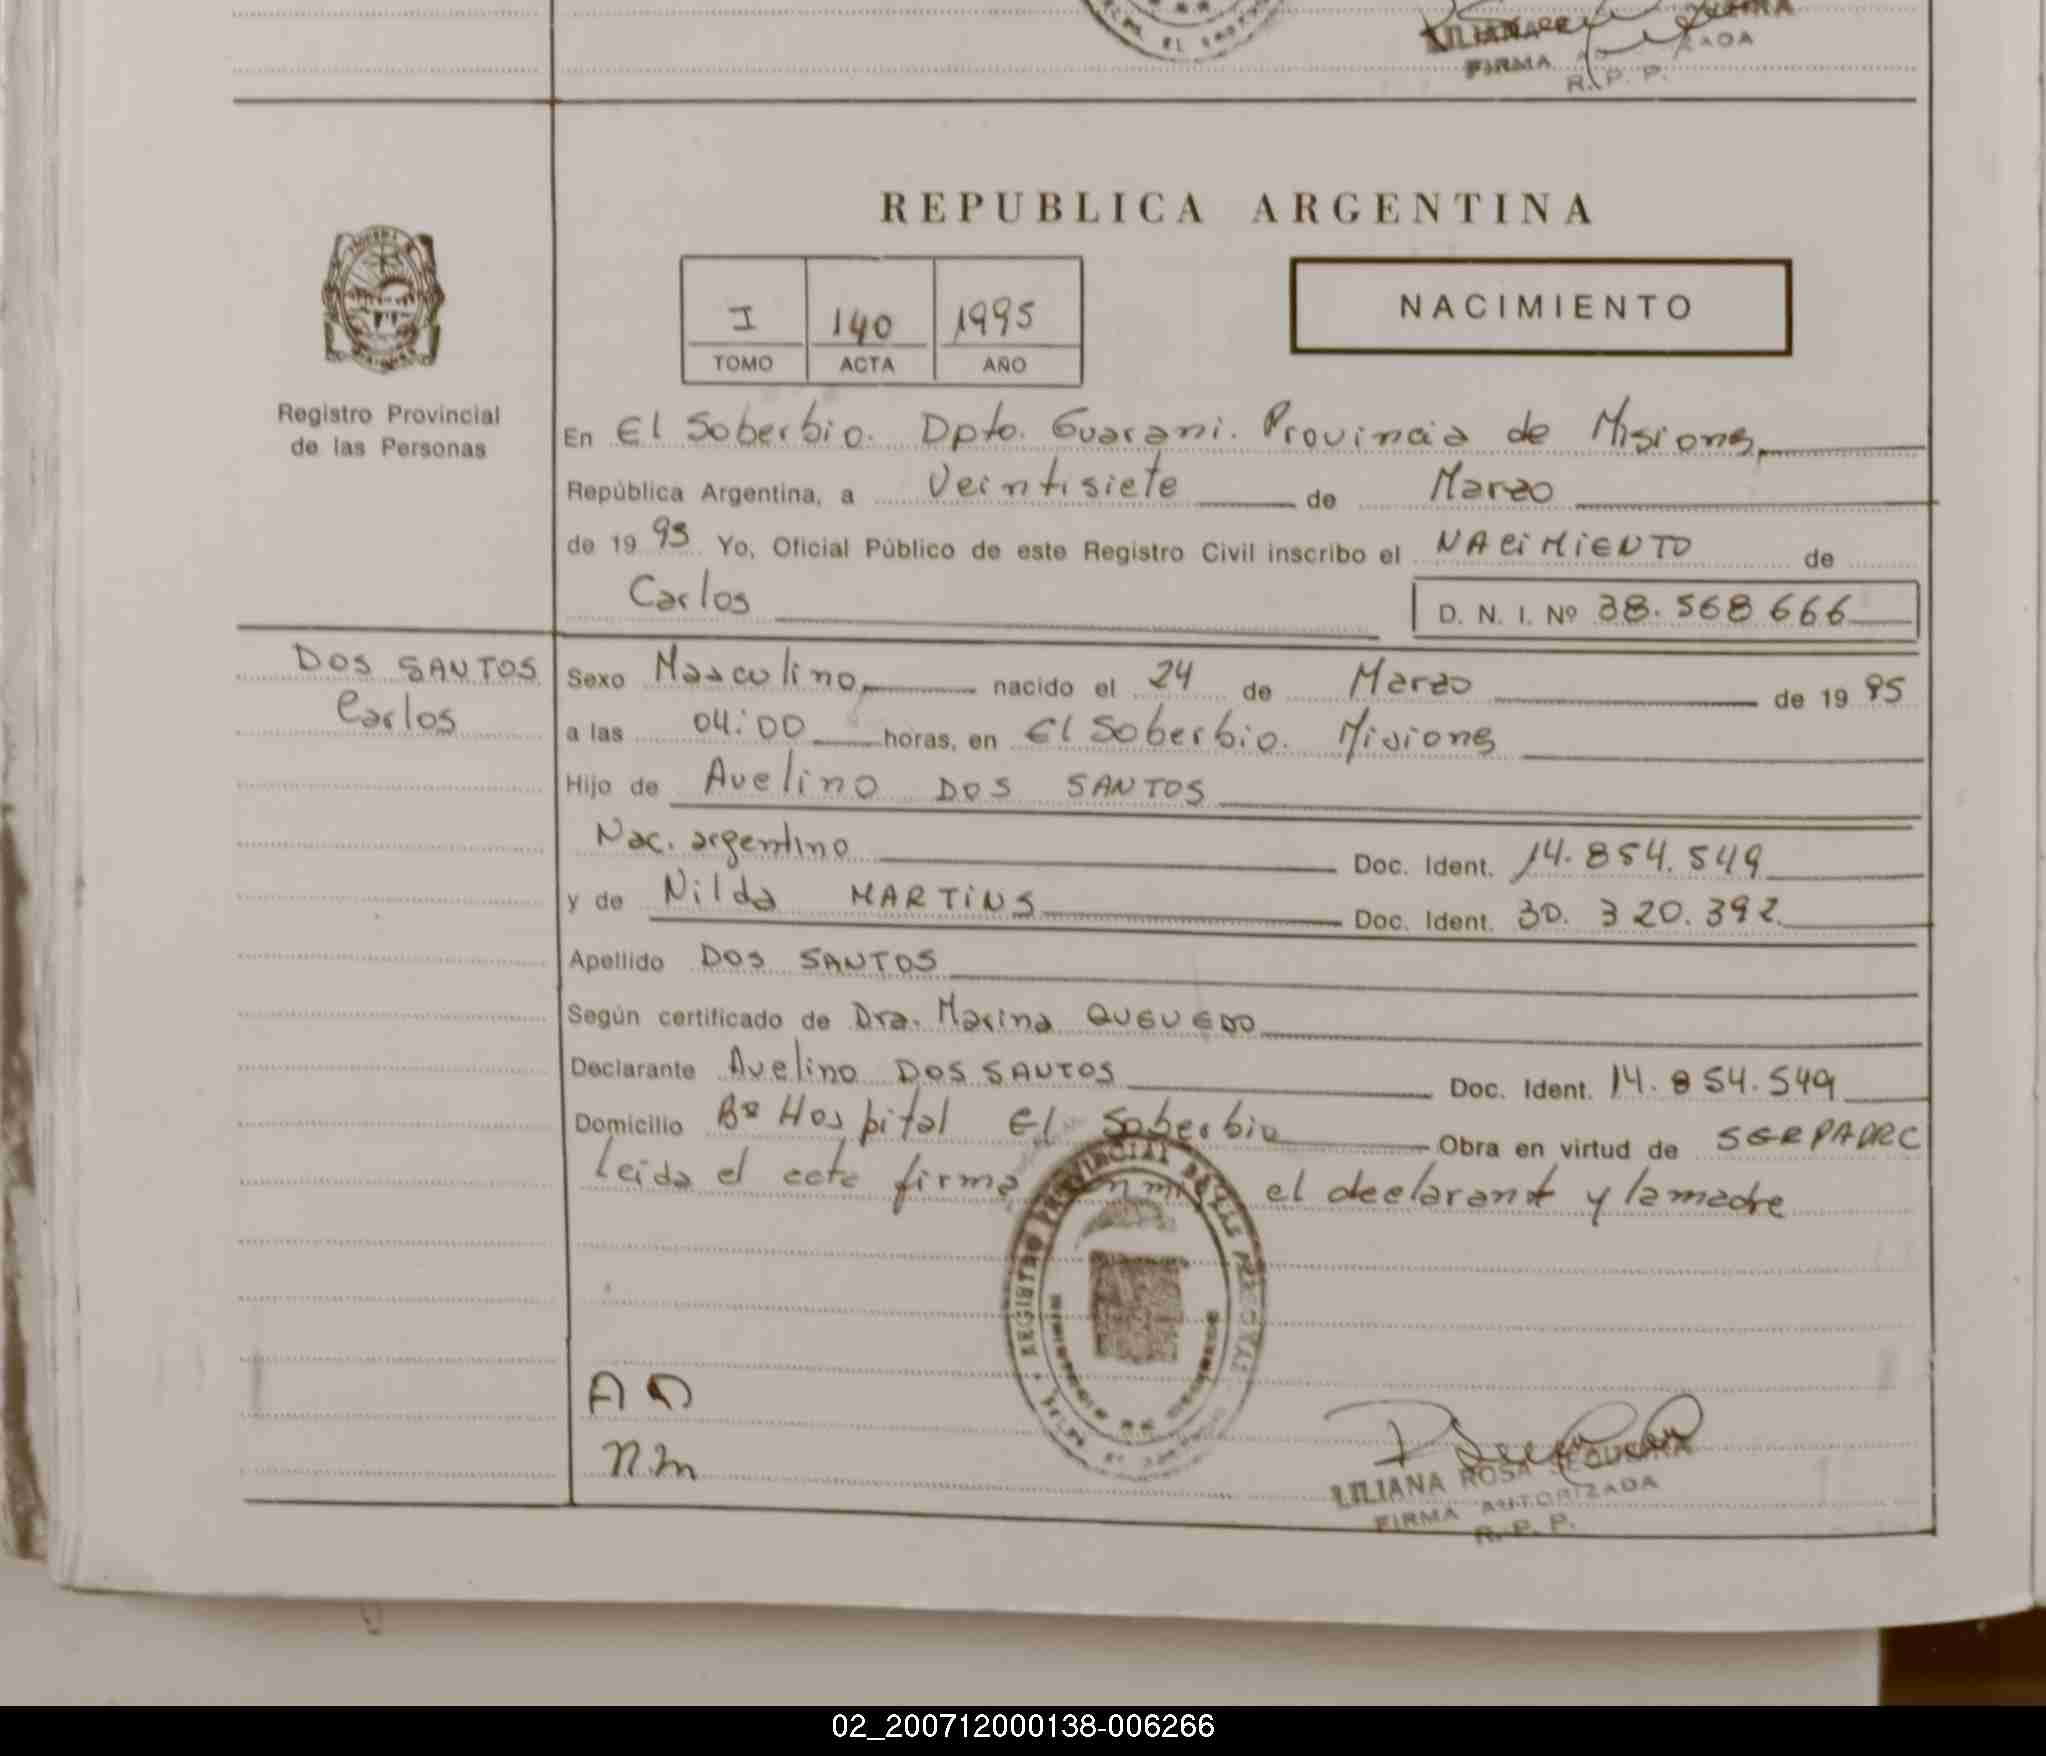 FIRMA
R. P. P.
REPUBLICA ARGENTINA
I 140 1995
TOMO ACTA AÑO
NACIMIENTO
Registro Provincial
de las Personas
En El Soberbio. Dpto. Guarani. Provincia de Misiones
República Argentina, a Veintisiete de Marzo
de 1995 Yo, Oficial Público de este Registro Civil inscribo el NACIMIENTO de
Carlos D. N. I. Nº 38.568666
DOS SANTOS
Carlos
Sexo Masculino nacido el 24 de Marzo de 1995
a las 04:00 horas, en El Soberbio. Misiones
Hijo de Avelino DOS SANTOS
Nac. argentino Doc. Ident. 14.854.549
y de Nilda MARTINS Doc. Ident. 30.320.392
Apellido DOS SANTOS
Según certificado de Dra. Marina QUEVEDO
Declarante Avelino DOS SANTOS Doc. Ident. 14.854.549
Domicilio Bº Hospital El Soberbio Obra en virtud de SER PADRE
Leida el acta firma el declarante y la madre
REGISTRO PROVINCIAL DE LAS PERSONAS
A D
N.M
LILIANA ROSA SEQUEIRA
FIRMA AUTORIZADA
R. P. P.
02_200712000138-006266